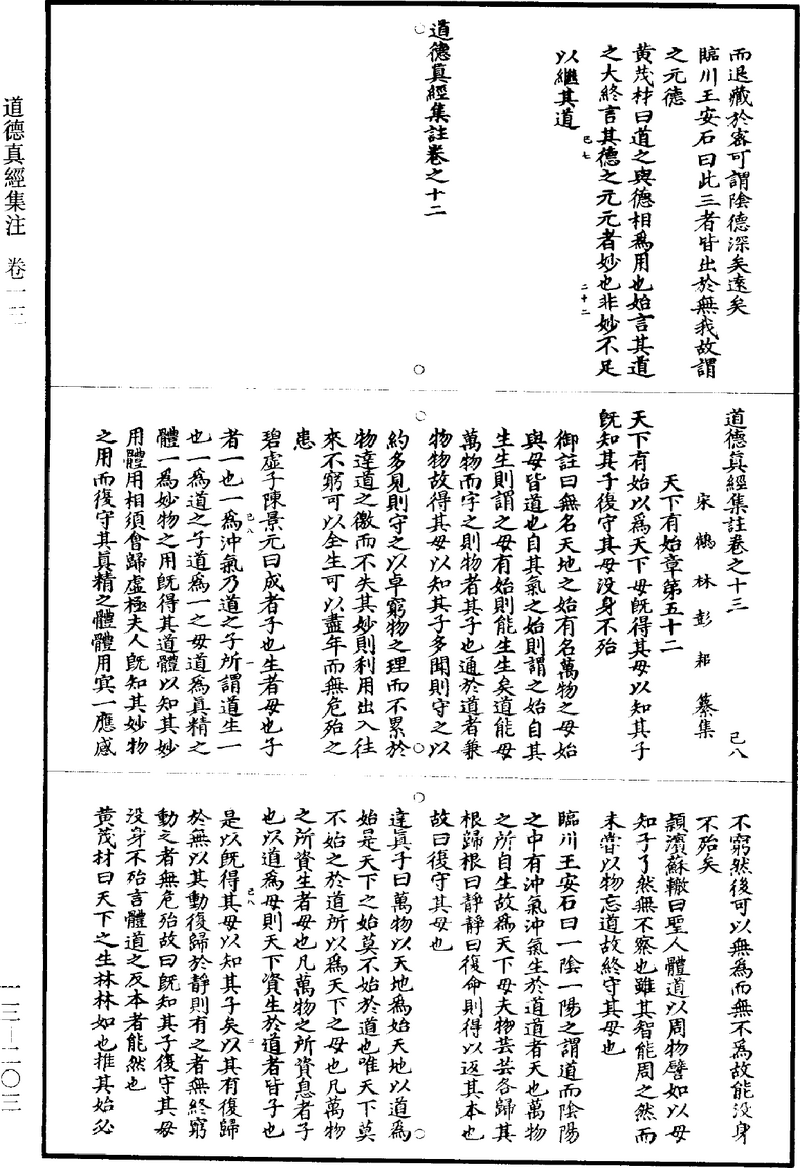 道德真經集注　卷一三
而退藏於密可謂陰德深矣遠矣
臨川王安石曰此三者皆出於無我故謂
之元德
黃茂材曰道之與德相為用也始言其道
之大終言其德之元元者妙也非妙不足
以繼其道
已七
二十二
道德真經集註卷之十二
道德真經集註卷之十三
已八
宋鶴林彭耜纂集
天下有始章第五十二
天下有始以為天下母既得其母以知其子
既知其子復守其母沒身不殆
御註曰無名天地之始有名萬物之母始
與母皆道也自其氣之始則謂之始自其
生生則謂之母有始則能生生矣道能母
萬物而字之則物者其子也通於道者兼
物物故得其母以知其子多聞則守之以
約多見則守之以卓窮物之理而不累於
物達道之徼而不失其妙則利用出入往
來不窮可以全生可以盡年而無危殆之
患
碧虛子陳景元曰成者子也生者母也子
者一也一為沖氣乃道之子所謂道生一
已八
一
也一為道之子道為一之母道為真精之
體一為妙物之用既得其道體以知其妙
用體用相須會歸虛極夫人既知其妙物
之用而復守其真精之體體用冥一應感
不窮然後可以無為而無不為故能沒身
不殆矣
潁濱蘇轍曰聖人體道以周物譬如以母
知子了然無不察也雖其智能周之然而
未嘗以物忘道故終守其母也
臨川王安石曰一陰一陽之謂道而陰陽
之中有沖氣沖氣生於道道者天也萬物
之所自生故為天下母夫物芸芸各歸其
根歸根曰靜靜曰復命則得以返其本也
故曰復守其母也
達真子曰萬物以天地為始天地以道為
始是天下之始莫不始於道也唯天下莫
不始之於道所以為天下之母也凡萬物
之所資生者母也凡萬物之所資息者子
也以道為母則天下資生於道者皆子也
已八
二
是以既得其母以知其子矣以其有復歸
於無以其動復歸於靜則有之者無終窮
動之者無危殆故曰既知其子復守其母
沒身不殆言體道之反本者能然也
黃茂材曰天下之生林林如也推其始必
一三—二〇三